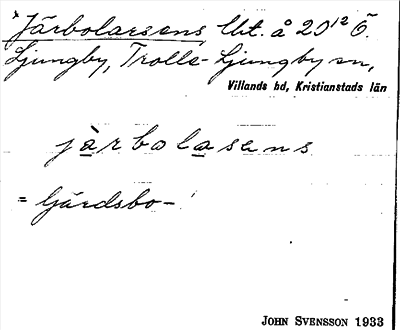 Järbolarsens, lht. å 20¹² Ö.
Ljungby, Trolle-Ljungby sn,
Villands hd, Kristianstads län
jàrbolasens
= Gärdsbo-
JOHN SVENSSON 1933